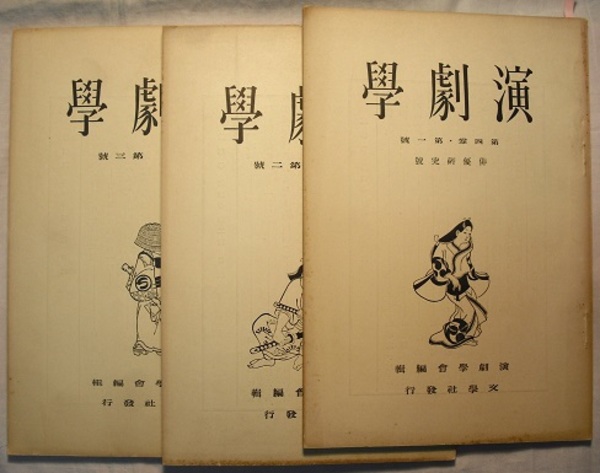 演劇學
第四卷・第一號
俳優研究號
演劇學會編輯
文學社發行
劇學
第二號
會編輯
發行
劇學
第三號
學會編輯
社發行